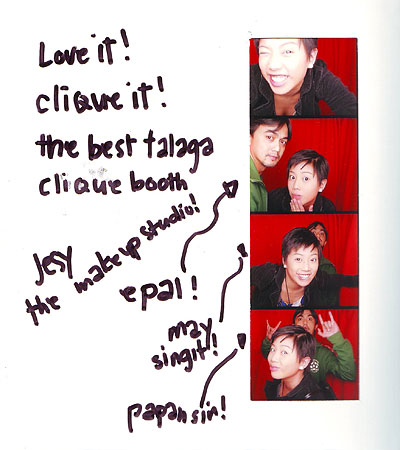 Love it!
clique it!
the best talaga
clique booth
Jesy
the makeup studio!
epal!
may
singit!
papansin!